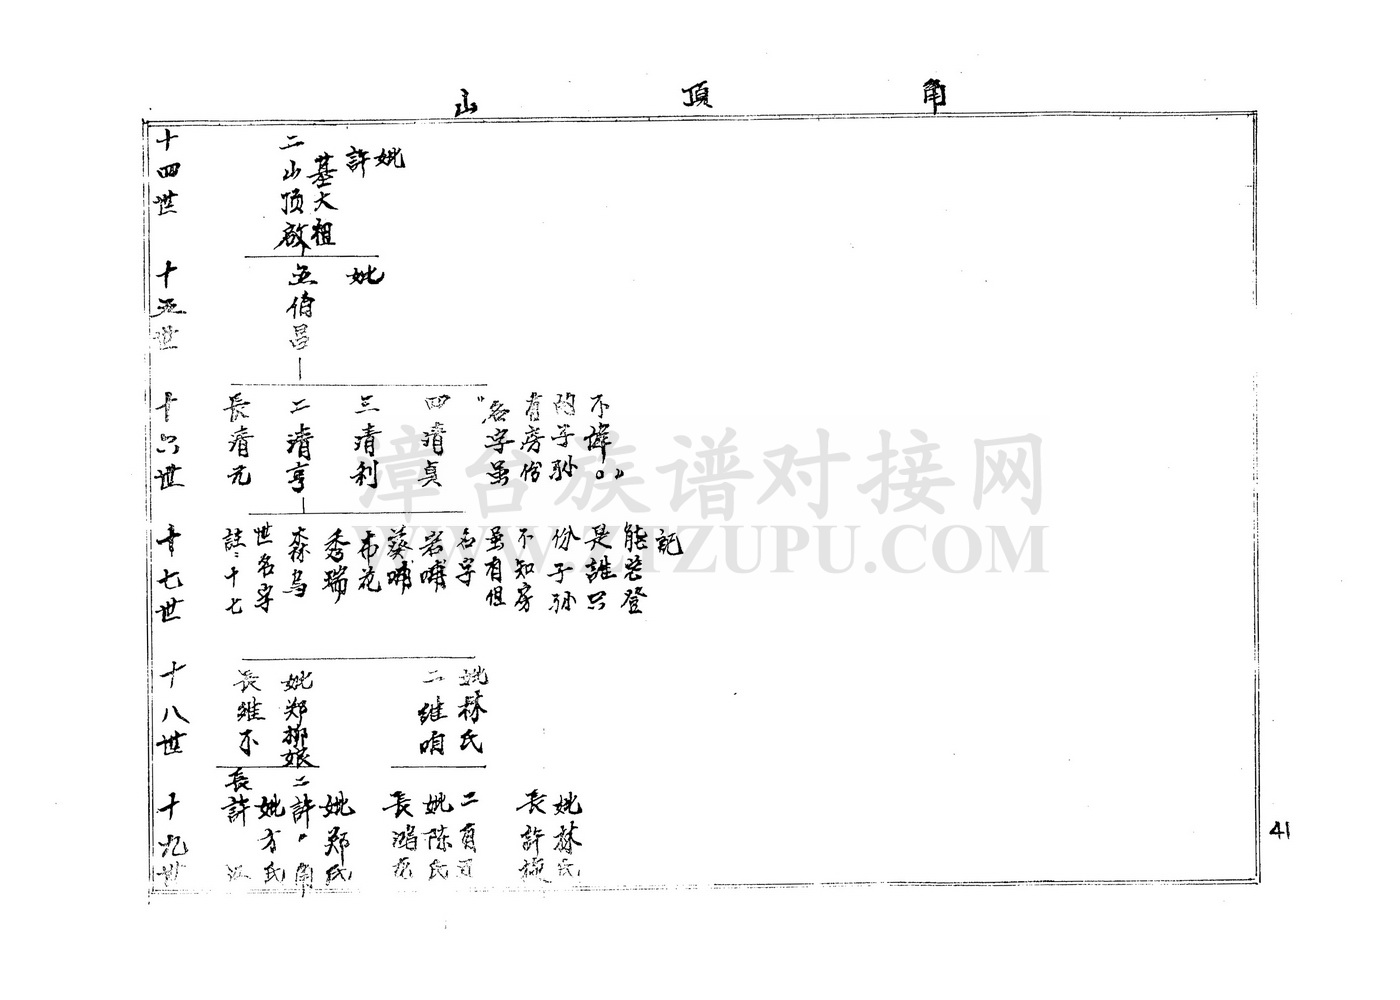 山頂角
十四世
二山顶啟
基大祖
許
妣
十五世
五伯昌
妣
十六世
長清元
二清亨
三清利
四清貞
"名字虽
有房份
的子孙
不諱。"
十七世
註十七
世名字
森鸟
秀瑞
布花
葵哺
岩哺
名字
虽有但
不知房
份子孙
是誰只
能茫登
記
十八世
長維不
妣郑柳娘
二维咱
妣林氏
十九世
長許
妣方氏
二許
妣郑氏
長鴻
妣陈氏
二有
長許極
妣林氏
41
漳台族谱对接网
WWW.ZTZUPU.COM